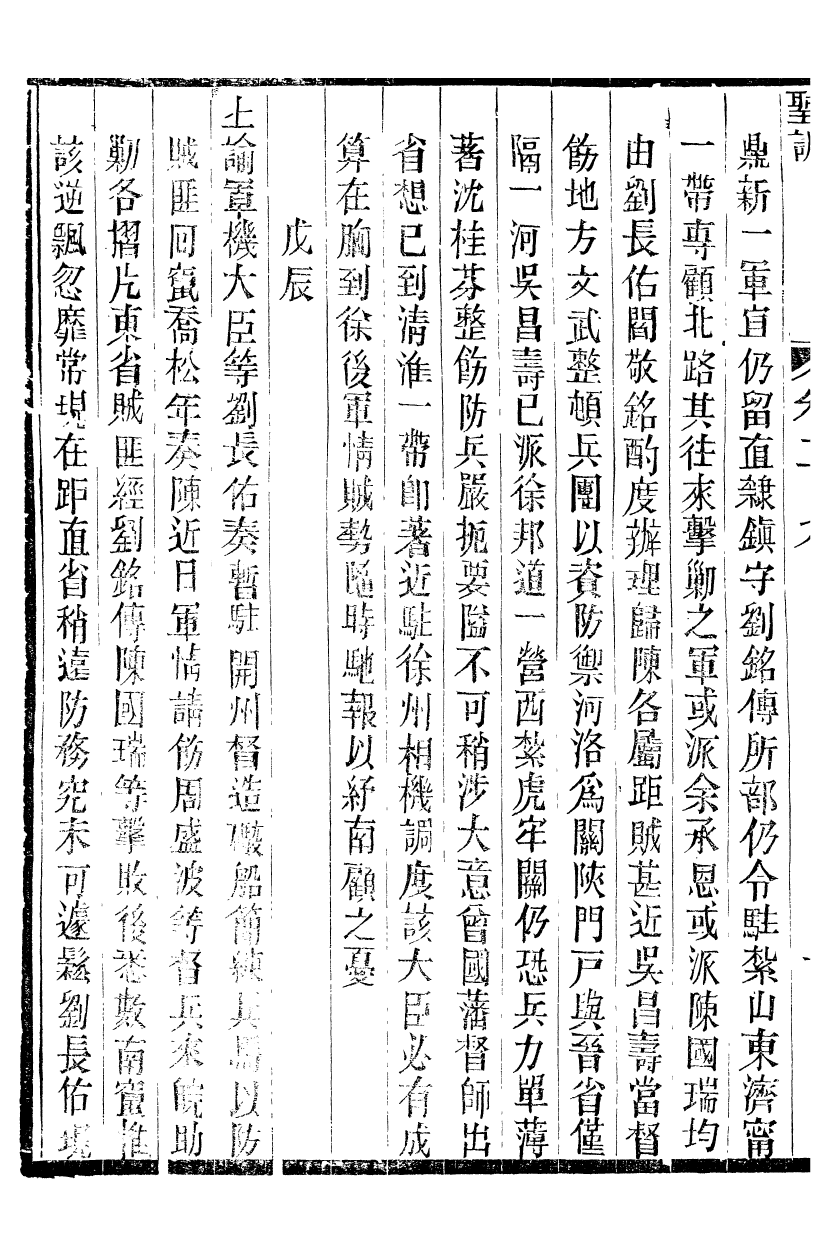 聖訓
鼎新一軍宜仍留直隸鎮守劉銘傳所部仍令駐紮山東濟甯
一帶專顧北路其往來擊勦之軍或派余承恩或派陳國瑞均
由劉長佑閻敬銘酌度辦理歸陳各屬距賊甚近吳昌壽當督
飭地方文武整頓兵團以資防禦河洛爲關陝門戸與晉省僅
隔一河吳昌壽已派徐邦道一營西紮虎牢關仍恐兵力單薄
著沈桂芬整飭防兵嚴扼要隘不可稍涉大意曾國藩督師出
省想已到清淮一帶卽著近駐徐州相機調度該大臣必有成
算在胸到徐後軍情賊勢隨時馳報以紓南顧之憂
戊辰
上諭軍機大臣等劉長佑奏暫駐開州督造礮船簡練兵馬以防
賊匪回竄喬松年奏陳近日軍情請飭周盛波等督兵來皖助
勦各摺片東省賊匪經劉銘傳陳國瑞等擊敗後悉數南竄惟
該逆飄忽靡常現在距直省稍遠防務究未可遽鬆劉長佑現